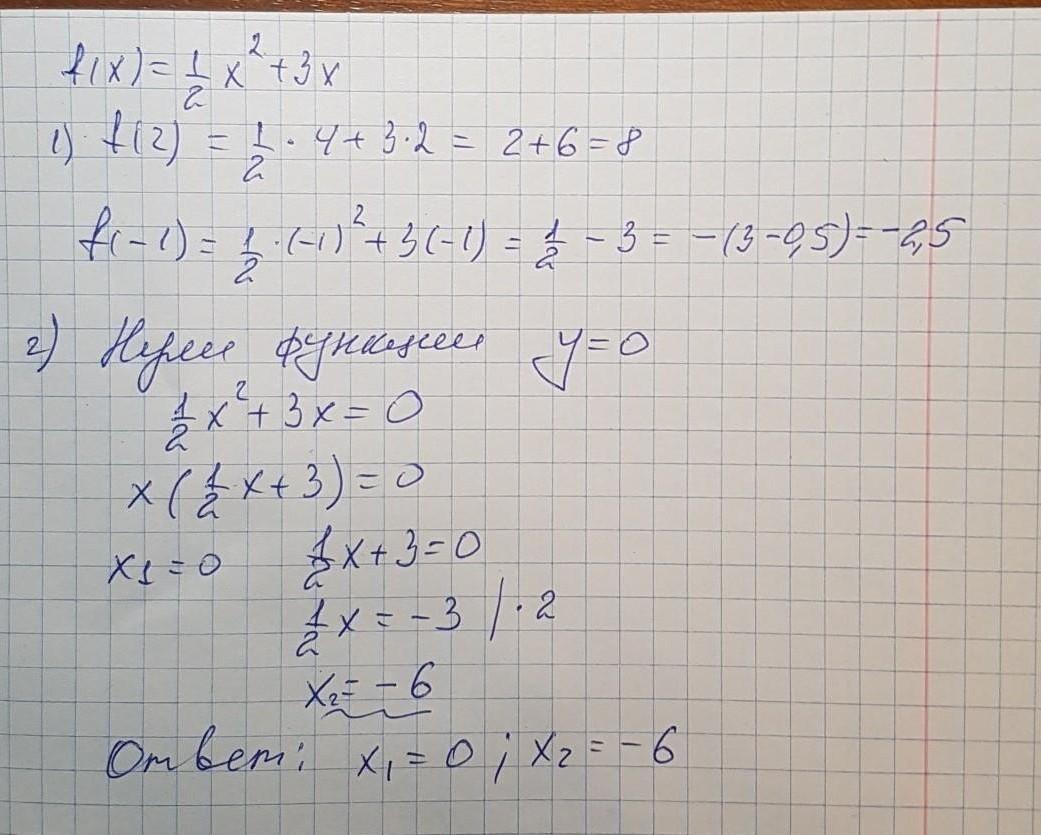 f(x) = 1/2 x² + 3x
1) f(2) = 1/2 · 4 + 3·2 = 2+6 = 8
f(-1) = 1/2 · (-1)² + 3(-1) = 1/2 - 3 = -(3-0,5) = -2,5
2) Нули функции y=0
1/2 x² + 3x = 0
x(1/2 x + 3) = 0
x1 = 0 1/2 x + 3 = 0
1/2 x = -3 /·2
x2 = -6
Ответ: x1 = 0; x2 = -6